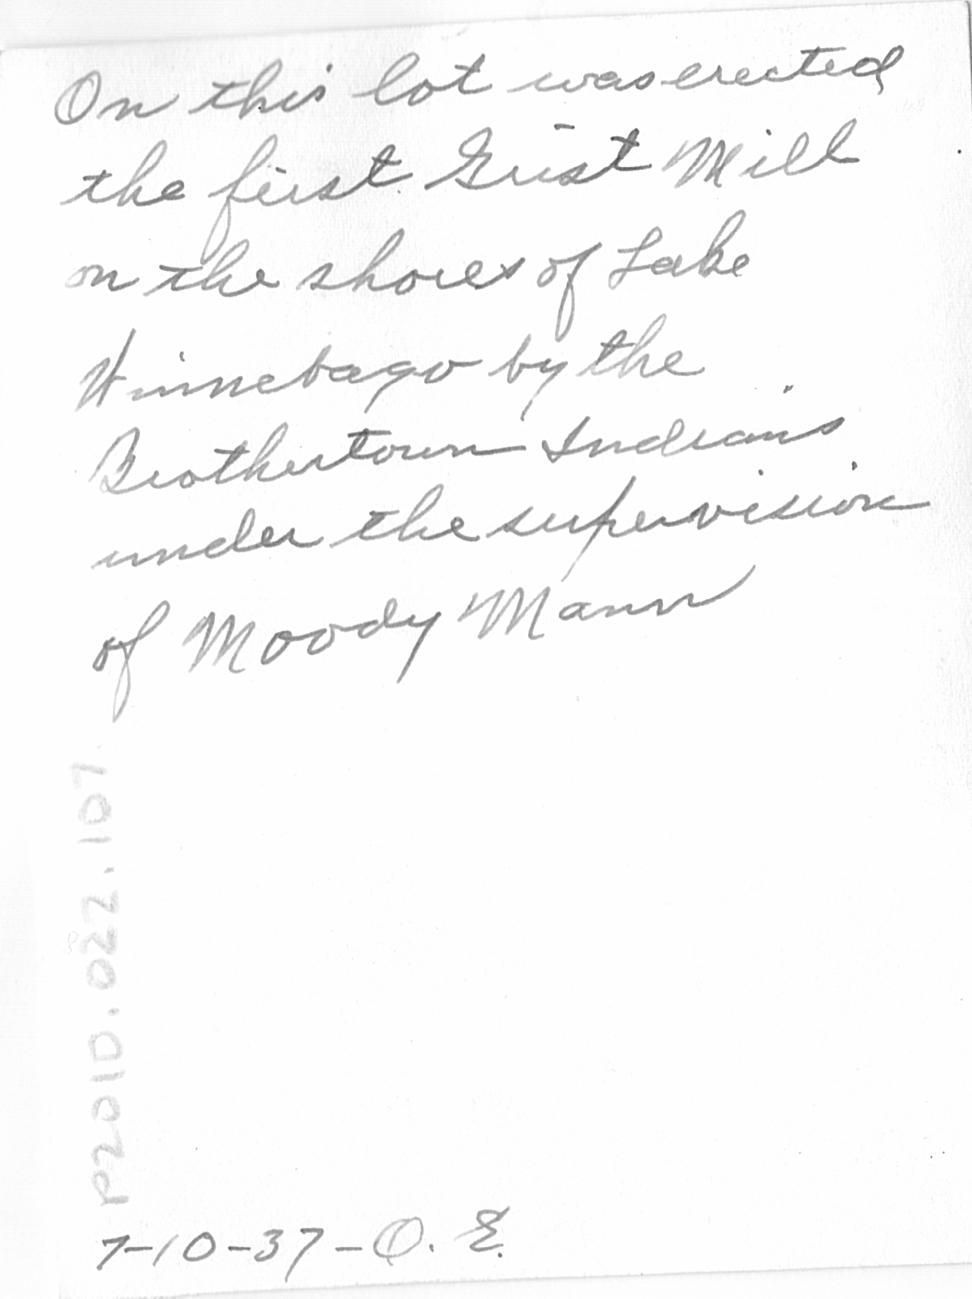 On this lot was erected
the first Grist Mill
on the shores of Lake
Winnebago by the
Brothertown Indians
under the supervision
of Moody Mann
P2010.022.107
7-10-37-O. E.